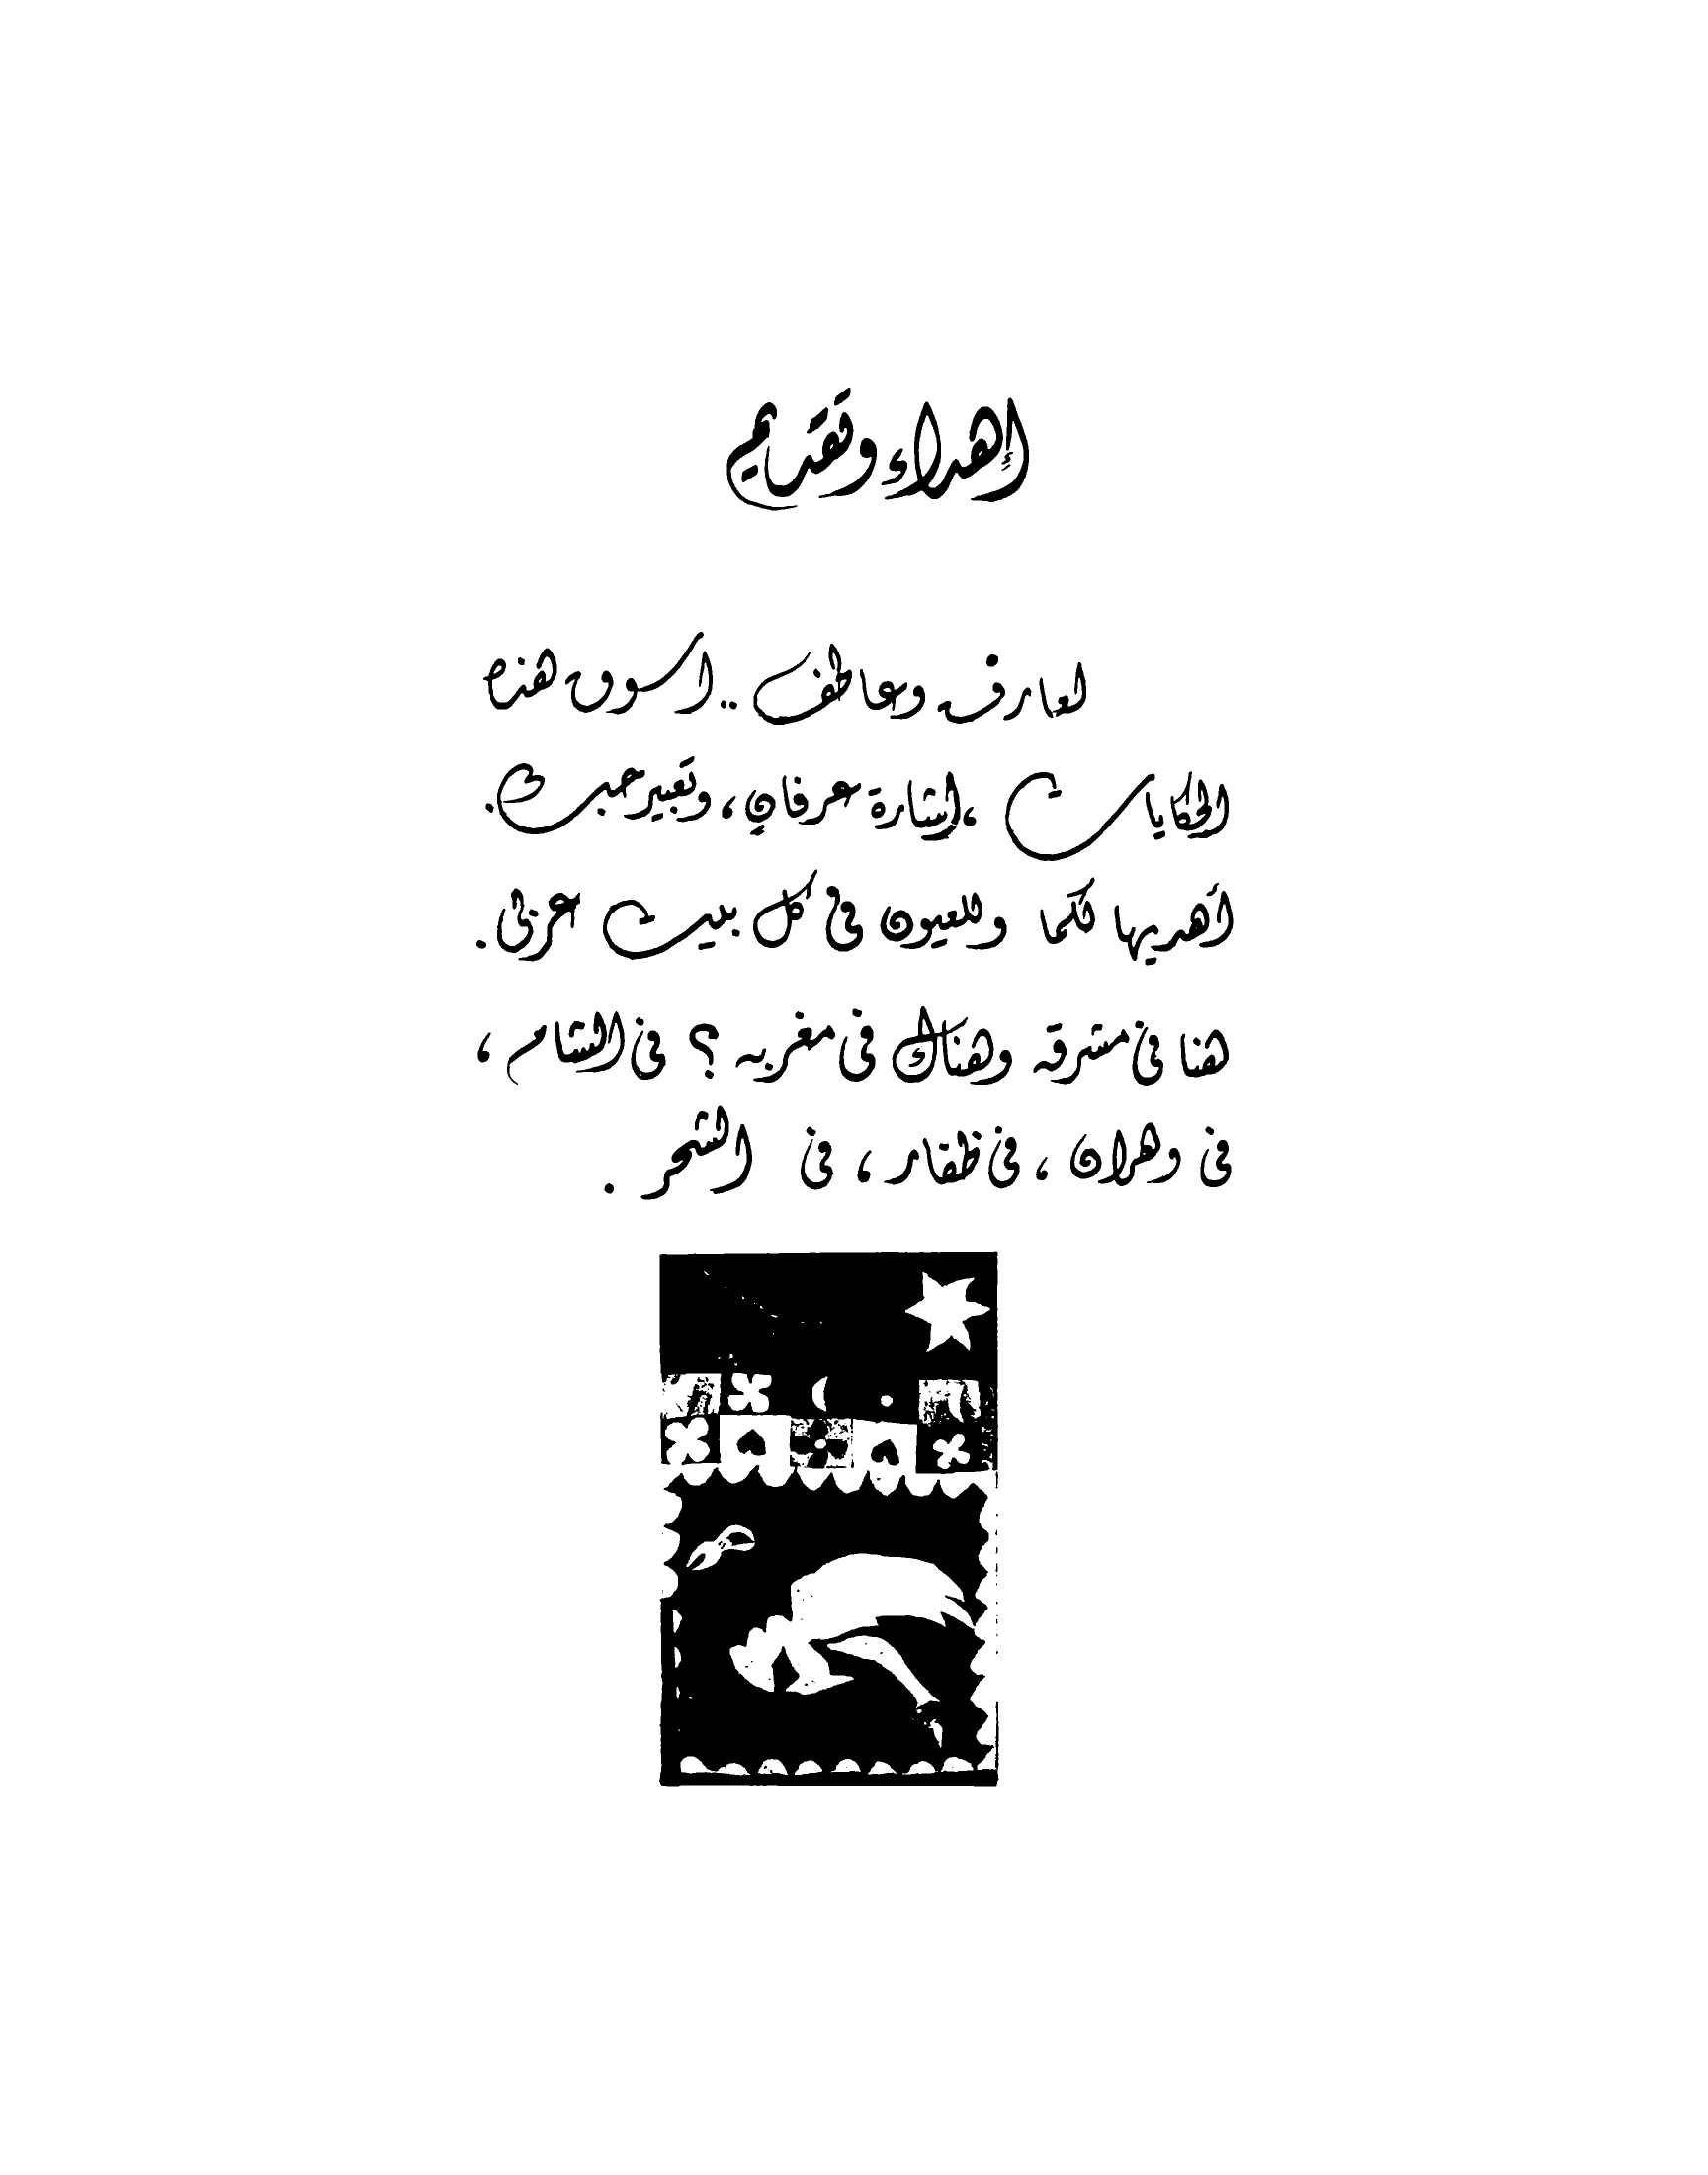 إهداء وتقديم
لعارف وعاطف .. أسوق هذه
الحكايات ، إشارة عرفانٍ ، وتعبير حب .
أهديها لكما وللعيون في كل بيت عربي .
هنا في مشرقه وهناك في مغربه ؟ في الشام ،
في وهران ، في ظفار ، في الشحر .